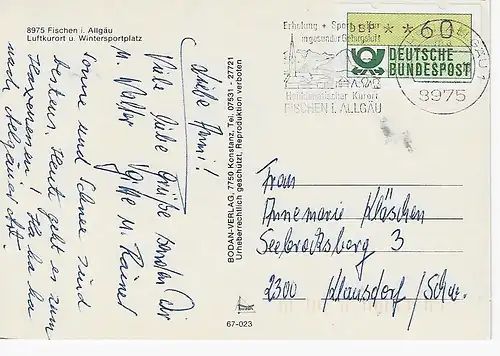 8975 Fischen i. Allgäu
Luftkurort u. Wintersportplatz
Liebe Anni!
Viele liebe Grüße senden Dir
M. Walter Gitte u. Rainer
Sonne und Schnee sind
bestens. Heute geht es zum
Hexxennen! Ha ha ha
nach Allgäuer Art.
BODAN-VERLAG, 7750 Konstanz, Tel. 07531 - 27721
Urheberrechtlich geschützt, Reproduktion verboten
67-023
Erholung + Sport
in gesunder Gebirgsluft
Heilklimatischer Kurort
FISCHEN I. ALLGÄU
DBP * * 60
DEUTSCHE
BUNDESPOST
8975
Frau
Annemarie Kläschen
Seebrooksberg 3
2300 Klausdorf/Schw.